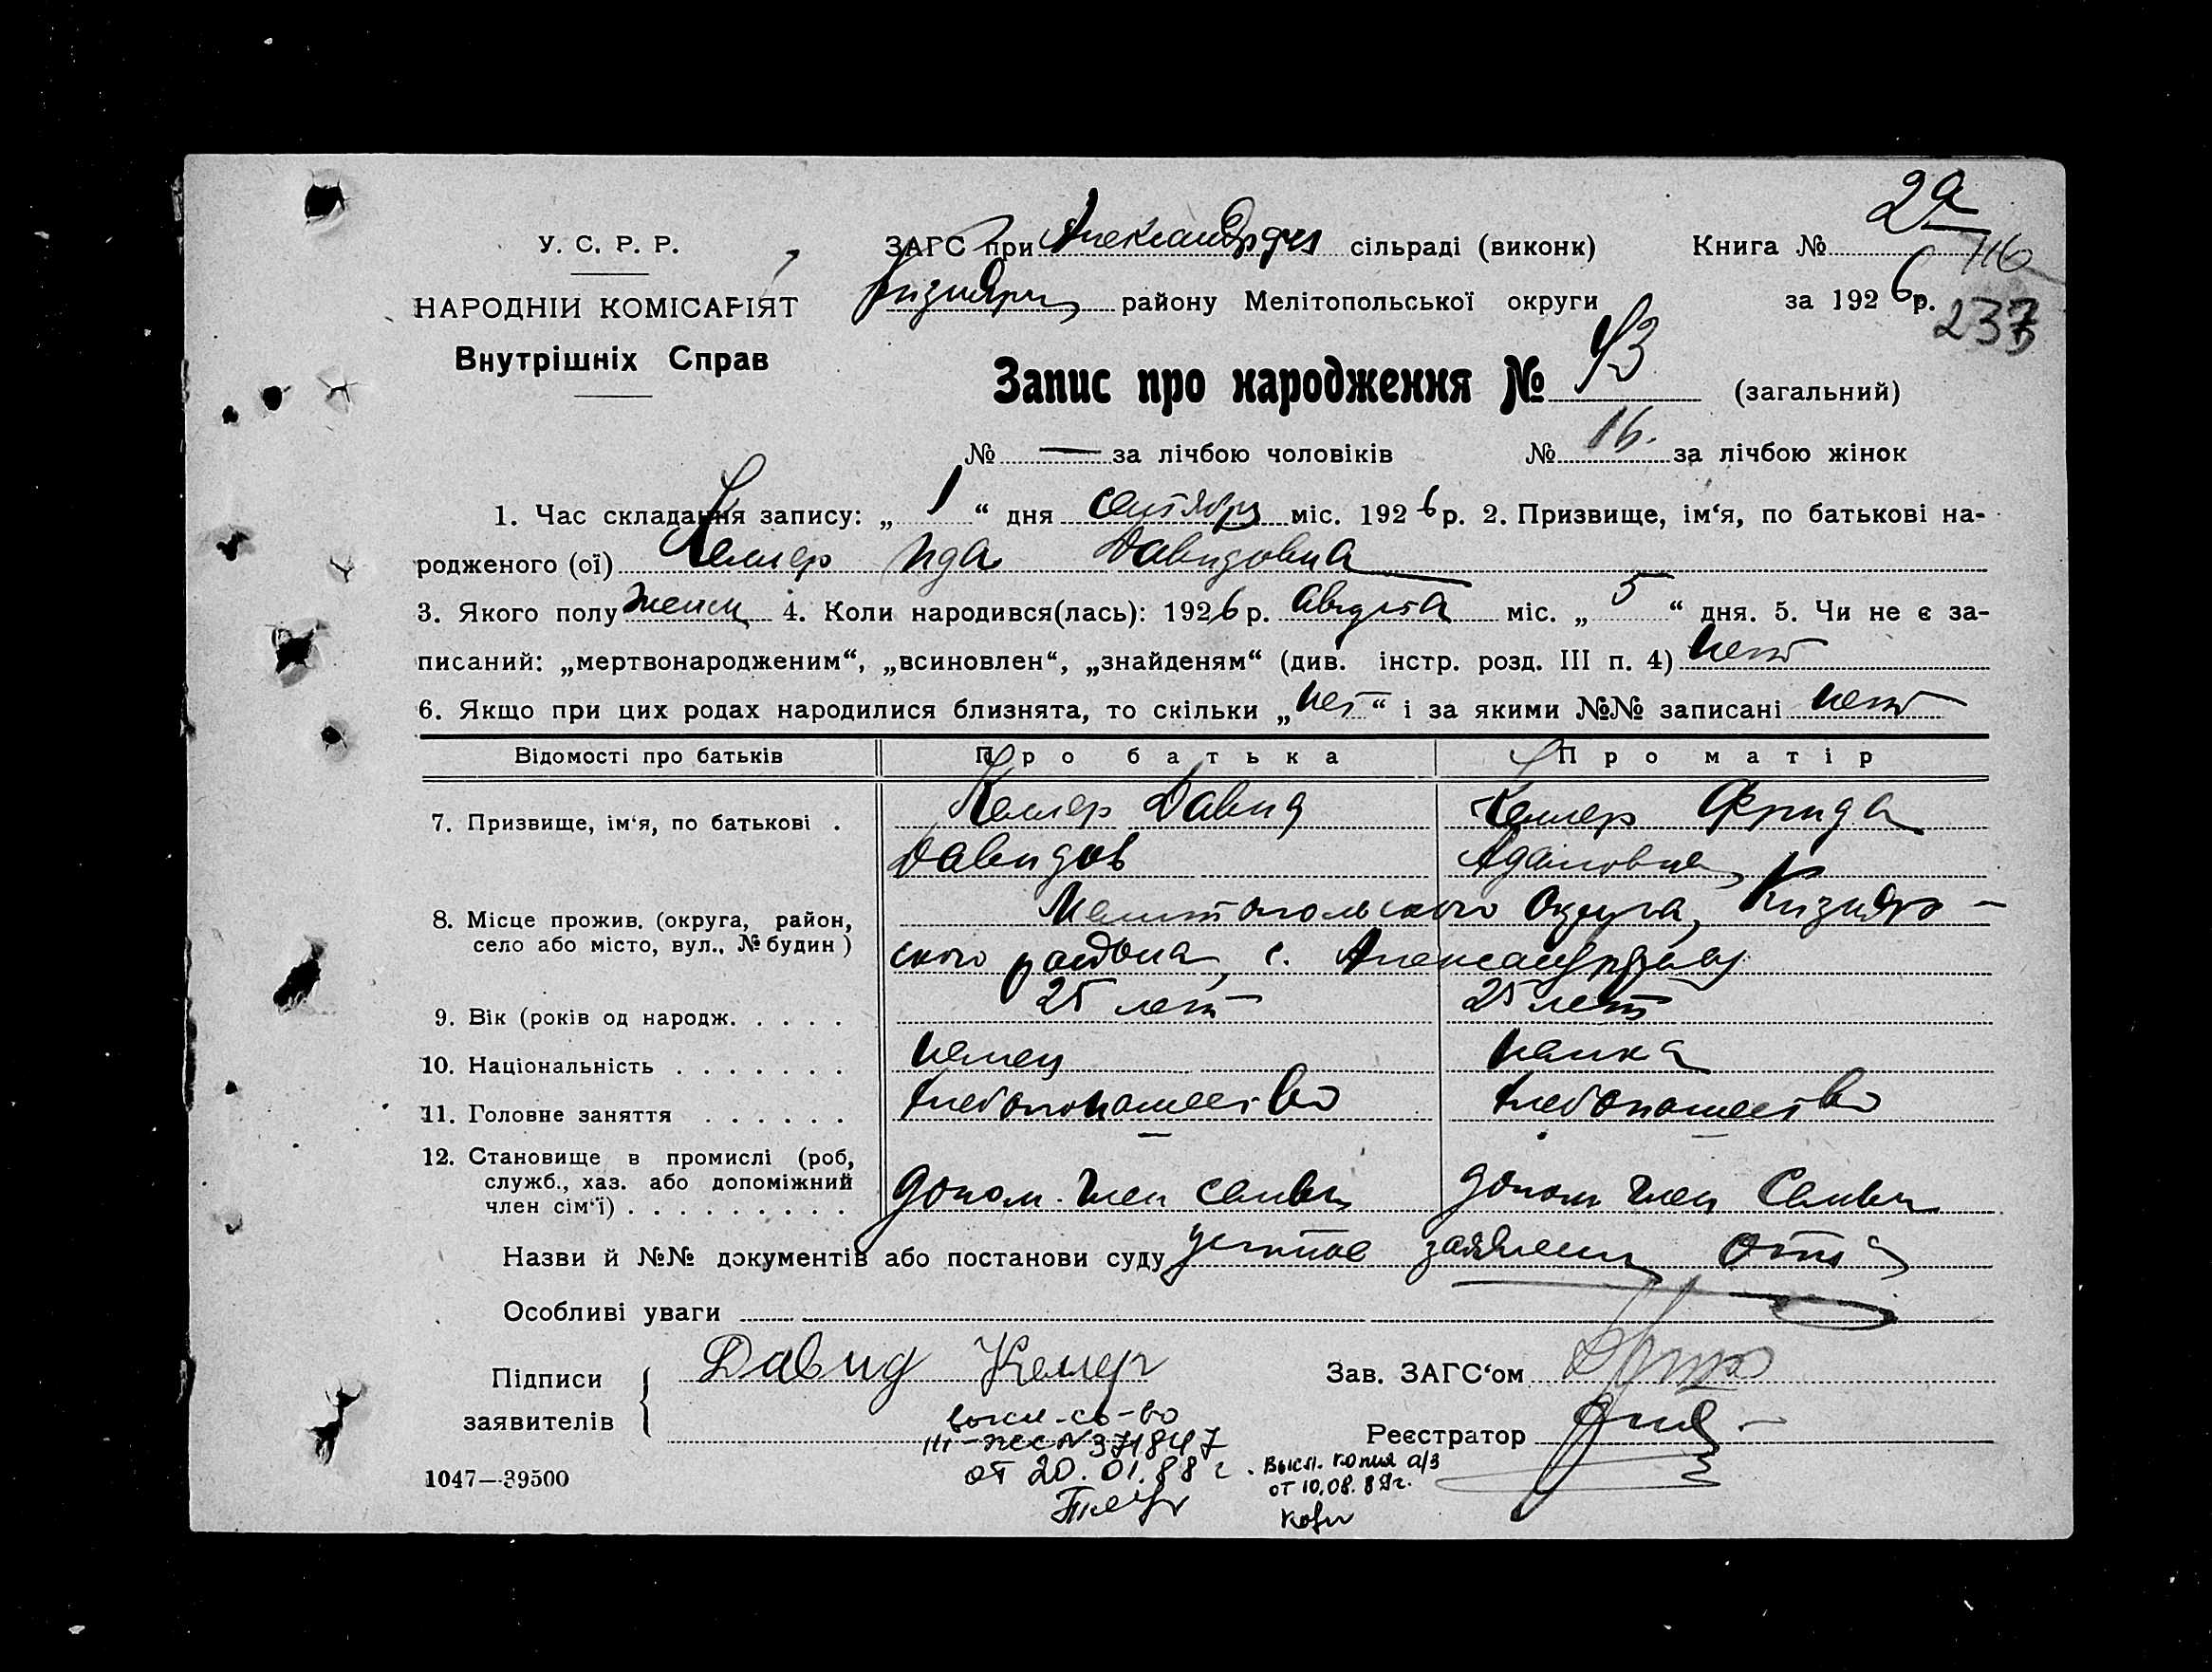 2а
У. С. Р. Р.
ЗАГС при сільраді (виконк)
Книга №
116
НАРОДНІЙ КОМІСАРІЯТ
району Мелітопольської округи
за 1926 р.
237
Внутрішніх Справ
Запис про народження № 43 (загальний)
№ — за лічбою чоловіків № 16. за лічбою жінок
1. Час складання запису: „ 1 “ дня сентября міс. 1926 р. 2. Призвище, ім‘я, по батькові на-
родженого (ої) Келлер Ида Давидовна
3. Якого полу женск 4. Коли народився(лась): 1926 р. Августа міс. „ 5 “ дня. 5. Чи не є за-
писаний: „мертвонародженим“, „всиновлен“, „знайденям“ (див. інстр. розд. III п. 4) нет
6. Якщо при цих родах народилися близнята, то скільки „нет“ і за якими №№ записані нет
Відомості про батьків Про батька Про матір
7. Призвище, ім‘я, по батькові . Келлер Давид Келлер Фрида
Давидов Адамовна
8. Місце прожив. (округа, район, Мелитопольского Округа,
село або місто, вул., № будин) ского района, с.
9. Вік (років од народж. . . . . 25 лет 25 лет
10. Національність . . . . . . . немец немка
11. Головне заняття . . . . . . хлебопашество хлебопашество
12. Становище в промислі (роб,
служб., хаз. або допоміжний
член сім‘ї) . . . . . . . . . допом. член семьи допом член семьи
Назви й №№ документів або постанови суду устное заявление отца
Особливі уваги
Підписи Давид Келлер Зав. ЗАГС‘ом
заявителів
Реєстратор
№ 371847
1047—39500
от 20.01.88 г.
Высл. копия а/з
от 10.08.89г.